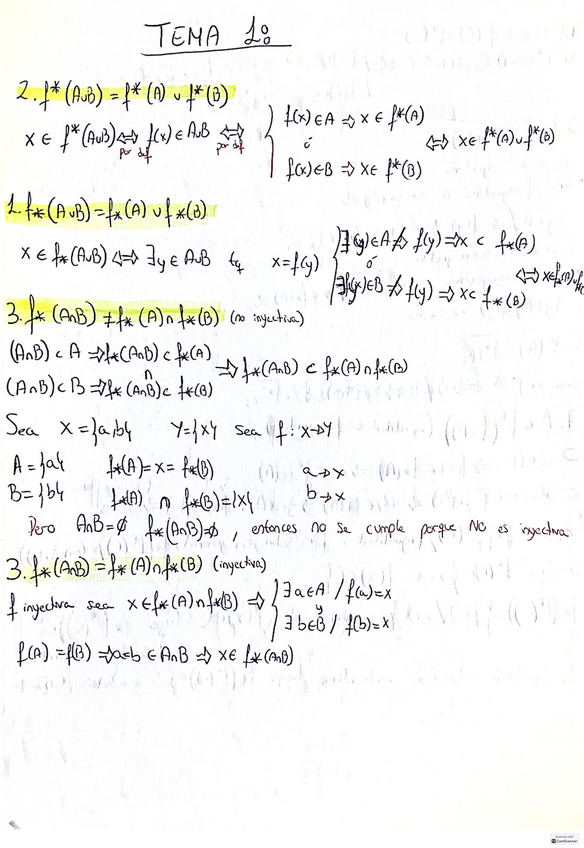 TEMA 1º
2. f*(A∪B) = f*(A) ∪ f*(B)
x ∈ f*(A∪B) ⟺ por def f(x) ∈ A∪B ⟺ por def { f(x) ∈ A ⇒ x ∈ f*(A) ó f(x) ∈ B ⇒ x ∈ f*(B) ⟺ x ∈ f*(A) ∪ f*(B)
1. f*(A∪B) = f*(A) ∪ f*(B)
x ∈ f*(A∪B) ⟺ ∃y ∈ A∪B tq x = f(y) { ∈ A f(y) ⇒ x ⊂ f*(A) ó ∈ B f(y) ⇒ x ⊂ f*(B) ⟺
3. f*(A∩B) ≠ f*(A) ∩ f*(B) (no inyectiva)
(A∩B) ⊂ A ⇒ f*(A∩B) ⊂ f*(A)
∩ ⇒ f*(A∩B) ⊂ f*(A) ∩ f*(B)
(A∩B) ⊂ B ⇒ f*(A∩B) ⊂ f*(B)
Sea X = {a,b} Y = {x} sea f: X→Y
A = {a} f*(A) = x = f*(B) a → x
B = {b} f*(A) ∩ f*(B) = {x} b → x
Pero A∩B = ∅ f*(A∩B) = ∅, entonces no se cumple porque NO es inyectiva
3. f*(A∩B) = f*(A) ∩ f*(B) (inyectiva)
f inyectiva sea x ∈ f*(A) ∩ f*(B) ⇒ { ∃ a ∈ A / f(a) = x y ∃ b ∈ B / f(b) = x
f(A) = f(B) ⇒ a = b ∈ A∩B ⇒ x ∈ f*(A∩B)
CamScanner